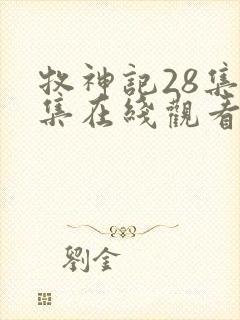 牧神記28集
集在綫觀看
劉金